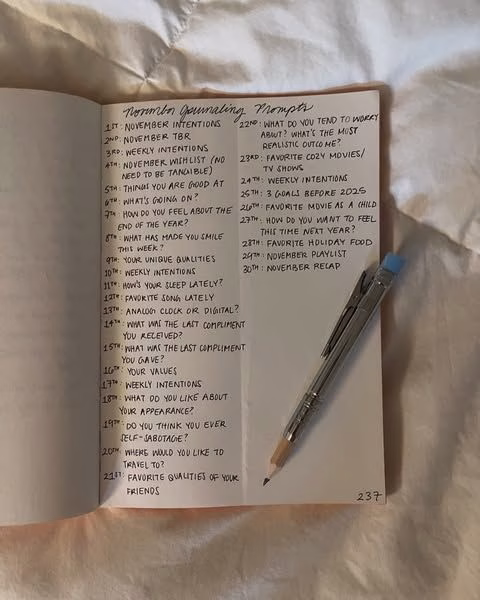 November Journaling Prompts
1ST: NOVEMBER INTENTIONS
2ND: NOVEMBER TBR
3RD: WEEKLY INTENTIONS
4TH: NOVEMBER WISHLIST (NO
NEED TO BE TANGIBLE)
5TH: THINGS YOU ARE GOOD AT
6TH: WHAT'S GOING ON?
7TH: HOW DO YOU FEEL ABOUT THE
END OF THE YEAR?
8TH: WHAT HAS MADE YOU SMILE
THIS WEEK?
9TH: YOUR UNIQUE QUALITIES
10TH: WEEKLY INTENTIONS
11TH: HOW'S YOUR SLEEP LATELY?
12TH: FAVORITE SONG LATELY
13TH: ANALOG CLOCK OR DIGITAL?
14TH: WHAT WAS THE LAST COMPLIMENT
YOU RECEIVED?
15TH: WHAT WAS THE LAST COMPLIMENT
YOU GAVE?
16TH: YOUR VALUES
17TH: WEEKLY INTENTIONS
18TH: WHAT DO YOU LIKE ABOUT
YOUR APPEARANCE?
19TH: DO YOU THINK YOU EVER
SELF-SABOTAGE?
20TH: WHERE WOULD YOU LIKE TO
TRAVEL TO?
21ST: FAVORITE QUALITIES OF YOUR
FRIENDS
22ND: WHAT DO YOU TEND TO WORRY
ABOUT? WHAT'S THE MOST
REALISTIC OUTCOME?
23RD: FAVORITE COZY MOVIES/
TV SHOWS
24TH: WEEKLY INTENTIONS
25TH: 3 GOALS BEFORE 2025
26TH: FAVORITE MOVIE AS A CHILD
27TH: HOW DO YOU WANT TO FEEL
THIS TIME NEXT YEAR?
28TH: FAVORITE HOLIDAY FOOD
29TH: NOVEMBER PLAYLIST
30TH: NOVEMBER RECAP
237